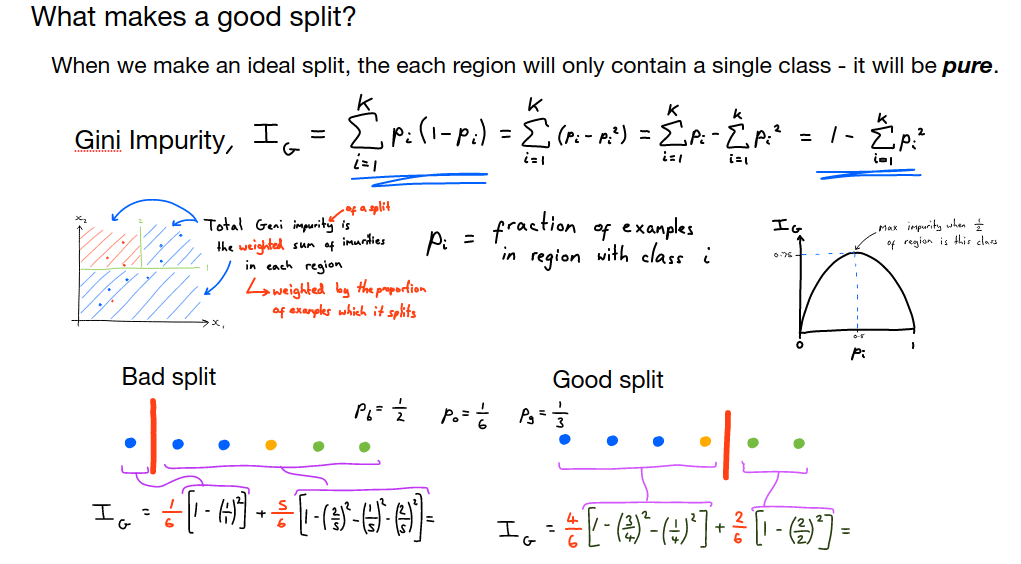 What makes a good split?
When we make an ideal split, the each region will only contain a single class - it will be pure.
Gini Impurity, I_G = Σ_{i=1}^{K} p_i(1-p_i) = Σ_{i=1}^{K} (p_i - p_i²) = Σ_{i=1}^{K} p_i - Σ_{i=1}^{K} p_i² = 1 - Σ_{i=1}^{K} p_i²
x_2
2
1
x_1
of a split
Total Geni impurity is
the weighted sum of imurities
in each region
↳ weighted by the proportion
of examples which it splits
p_i = fraction of examples
in region with class i
I_G
Max impurity when 1/2
of region is this class
0.75
0
0.5
1
p_i
Bad split
Good split
P_b = 1/2 P_o = 1/6 P_g = 1/3
I_G = 1/6 [1 - (1/1)²] + 5/6 [1 - (2/5)² - (1/5)² - (2/5)²] =
I_G = 4/6 [1 - (3/4)² - (1/4)²] + 2/6 [1 - (2/2)²] =